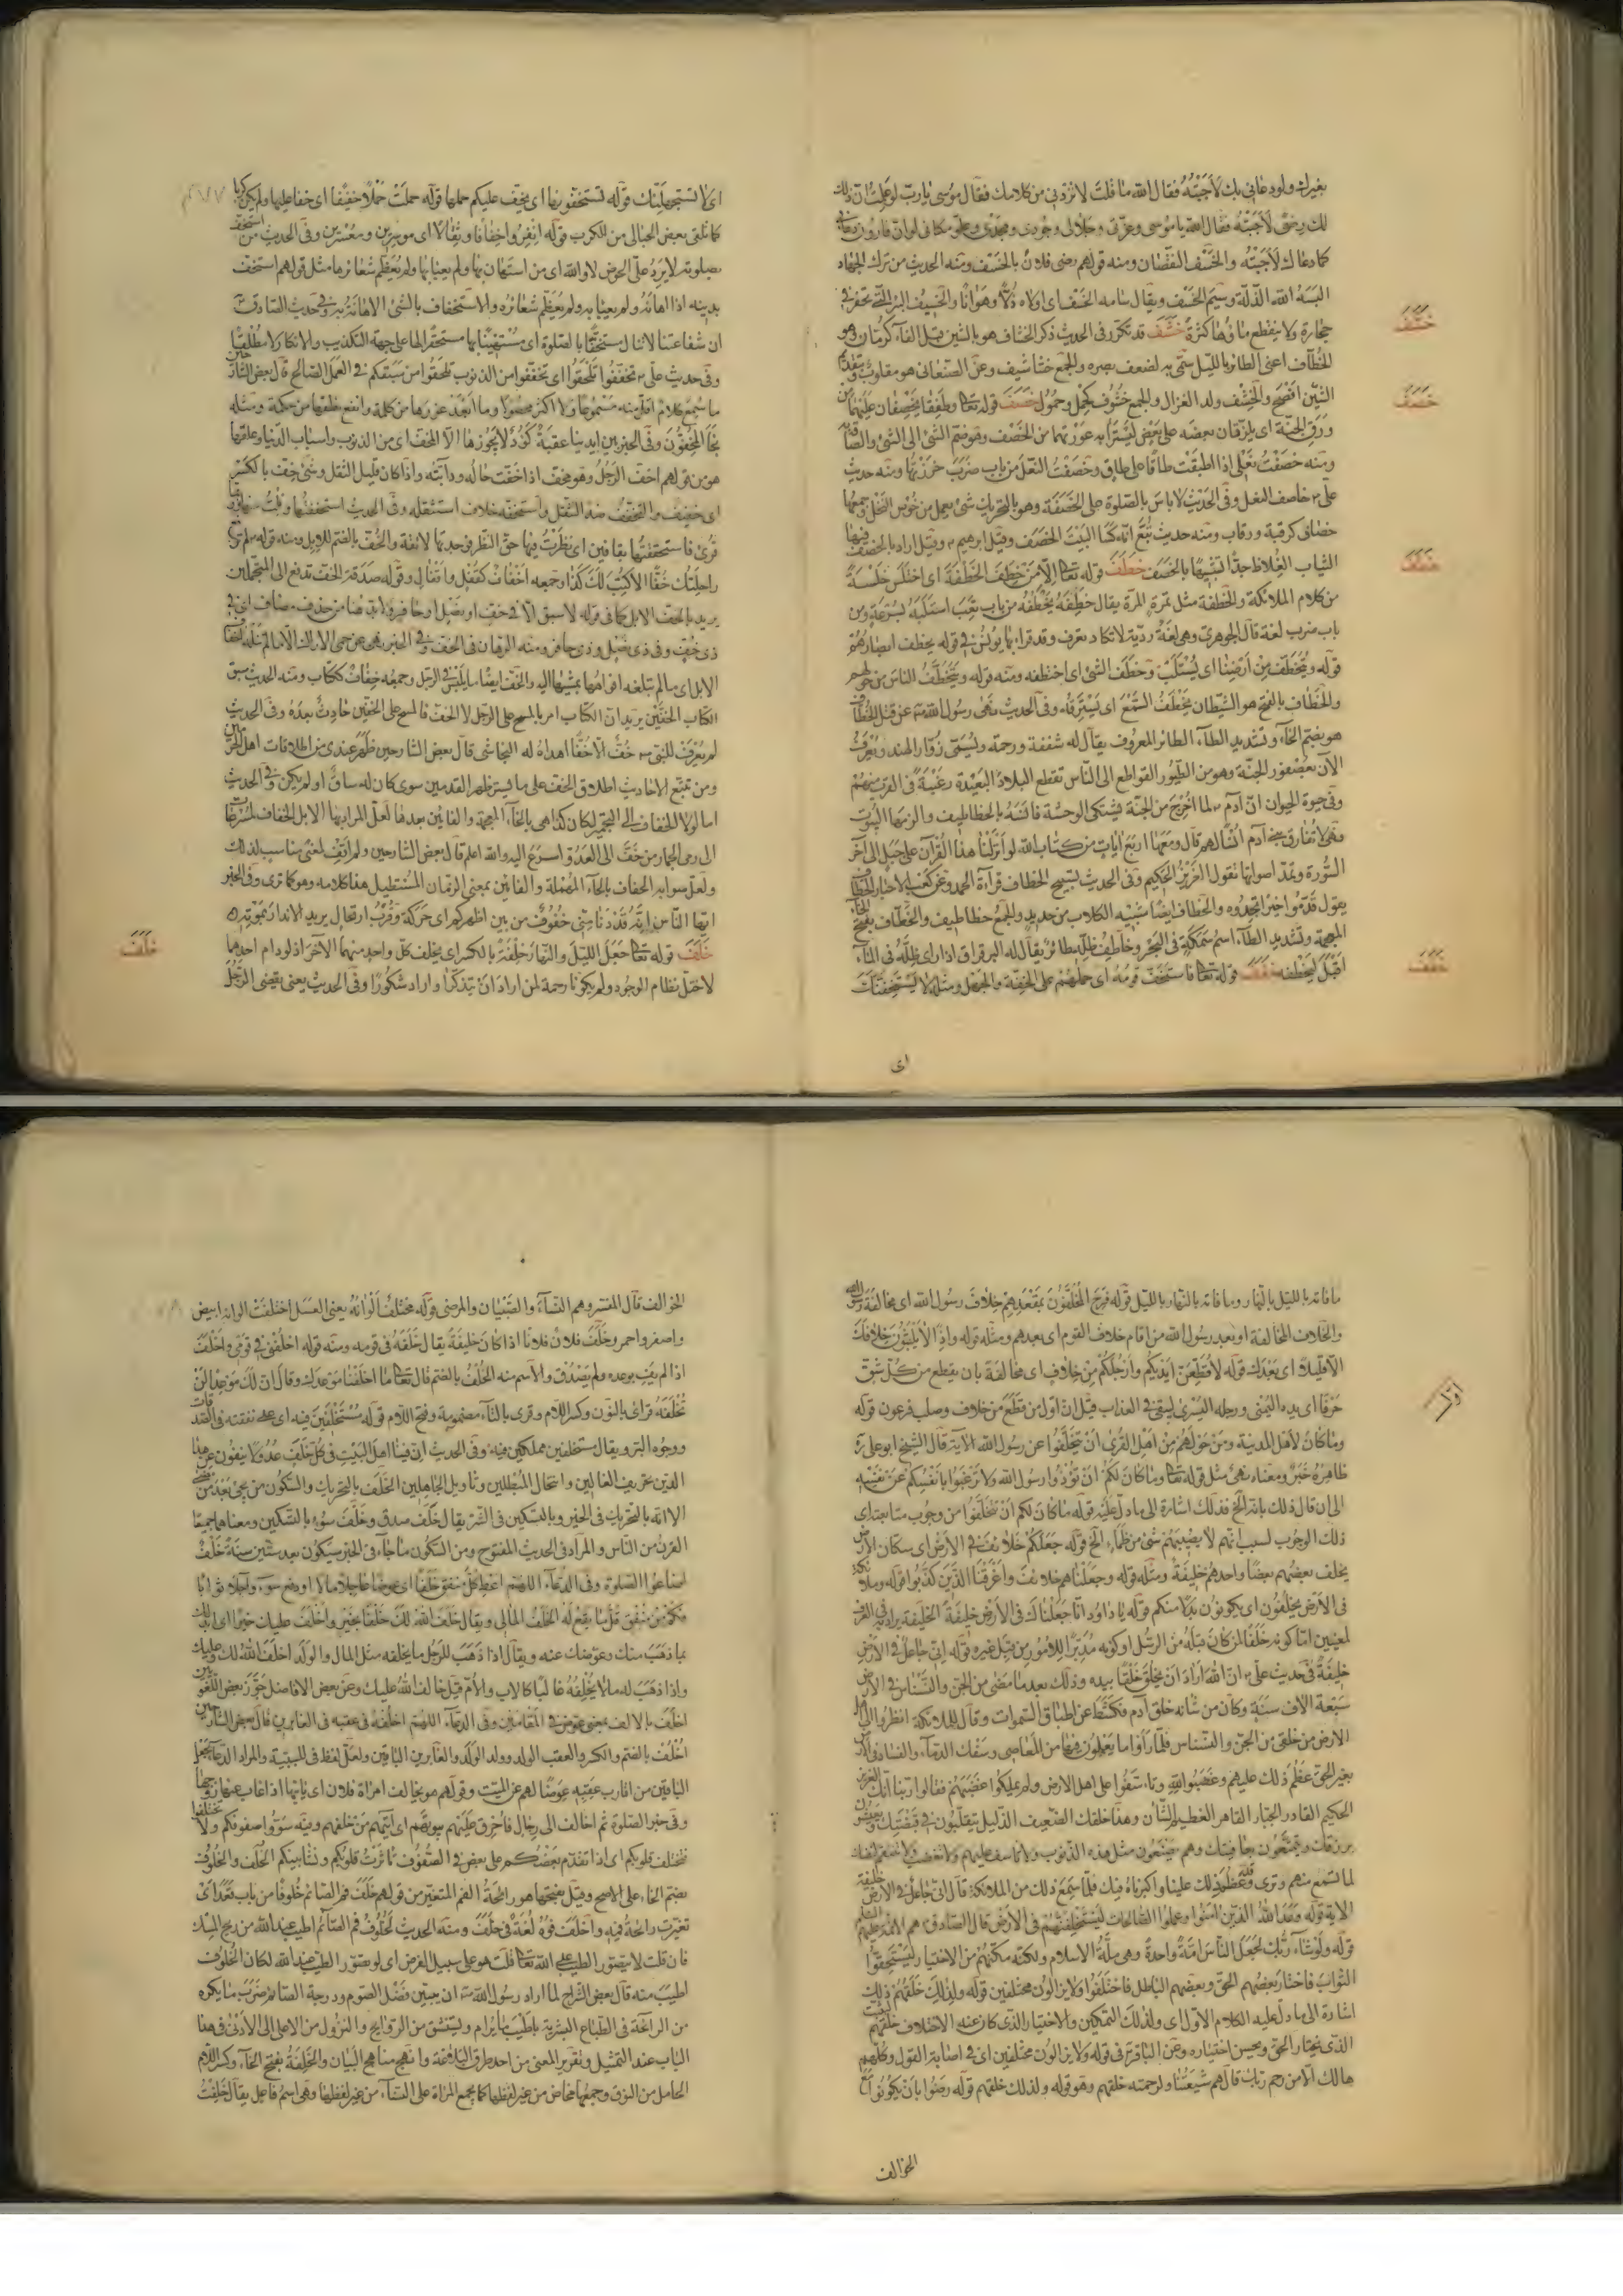 بغيرك ولو دعاني بك لأجبته فقال الله ما قلت لا تزدني من كلامك فقال موسى يا رب لو علمت ان ذلك
لك رضى لأجبته فقال الله يا موسى وعزتي وجلالي وجودي ومجدي وعلو مكاني لو ان قارون دعاني
كما دعاك لأجبته والخسف النقصان ومنه قولهم رضى فلان بالخسف ومنه الحديث من ترك الجهاد
البسه الله الذلة وسيم الخسف ويقال سامه الخسف اى اولاه ذلا وهوانا والخسيف البئر التي تحفر في
حجارة ولا ينقطع ماؤها كثرة خشف قد تكرر في الحديث ذكر الخشاف هو بالشين قبل الفاء كرمان هو
خشف
الخطاف اعني الطائر بالليل سمى به لضعف بصره والجمع خشاشيف وعن الصنعاني هو مقلوب وبتقديم
الشين افصح والخشف ولد الغزال والجمع خشوف كحمل وحمول خصف قوله تعالى وطفقا يخصفان عليهما من
خصف
ورق الجنة اى يلزقان بعضه على بعض ليسترا به عوراتهما من الخصف وهو ضم الشئ الى الشئ والصاقه به
ومنه خصفت نعلي اذا اطبقت طاقا على طاق وخصفت النعل من باب ضرب خرزتها ومنه حديث
علي خاصف النعل وفي الحديث لا باس بالصلوة على الخصفة وهو بالتحريك شئ يعمل من خوص النخل وجمعها
خصاف كرقبة ورقاب ومنه حديث تبع انه كسا البيت الخصف وقيل ابرهيم وقيل اراد بالخصف فيها
الثياب الغلاظ جدا تشبيها بالخصف خطف قوله تعالى الا من خطف الخطفة اى اختلس خلسة
خطف
من كلام الملائكة والخطفة مثل تمرة المرة يقال خطفه يخطفه من باب تعب استلبه بسرعة ومن
باب ضرب لغة قال الجوهري وهي لغة ردية لا تكاد تعرف وقد قرأ بها يونس في قوله يخطف ابصارهم
قوله ونتخطف من ارضنا اى نستلب وخطف الشئ اى اختطفه ومنه قوله ويتخطف الناس من حولهم
والخطاف بالفتح هو الشيطان يخطف السمع اى يسترقه وفي الحديث نهى رسول الله عن قتل الخطاف
هو بضم الخاء وتشديد الطاء الطائر المعروف يقال له شفقة ورحمة ويسمى زوار الهند ويعرف
الآن بعصفور الجنة وهو من الطيور القواطع الى الناس تقطع البلاد البعيدة رغبة في القرب منهم
وفي حيوة الحيوان ان آدم لما اخرج من الجنة يشتكي الوحشة فانسه بالخطاطيف والزمها البيوت
فهي لا تفارق بني آدم انسا لهم قال ومعها اربع ايات من كتاب الله لو انزلنا هذا القرآن على جبل الى آخر
السورة وتمد اصواتها بقول العزيز الحكيم وفي الحديث تسبيح الخطاف قرآءة الحمد وعن كعب الاحبار الخطاف
يقول قدموا خيرا تجدوه والخطاف ايضا شبيه الكلاب من حديد والجمع خطاطيف والخطاف بفتح الخاء
المعجمة وتشديد الطاء اسم سمكة في البحر وخاطف ظله طائر يقال له الرفراف اذا راى ظله في الماء
اقبل ليخطفه خفف قوله تعالى فاستخف قومه اى حملهم على الخفة والجهل ومثله لا يستخفنك
خفف
اى
اى لا تستجهلنك قوله تستخفونها اى يخف عليكم حملها قوله حملت حملا خفيفا اى خفا عليها ولم تلق كربا
كما تلقى بعض الحبالى من الكرب قوله انفروا خفافا وثقالا اى موسرين ومعسرين وفي الحديث من استخف
بصلوته لا يرد على الحوض لا والله اى من استهان بها ولم يعبا بها ولم يعظم شعائرها مثل قولهم استخف
بدينه اذا اهانه ولم يعبا به ولم يعظم شعائره والاستخفاف بالشئ الاهانة به وفي حديث الصادق
ان شفاعتنا لا تنال مستخفا بالصلوة اى مستهينا بها مستحقرا لها على جهة التكذيب والانكار لا مطلقا
وفي حديث علي تخففوا تلحقوا اى تخففوا من الذنوب تلحقوا من سبقكم في العمل الصالح قال بعض الشارحين
ما سمع كلام اقل منه مسموعا ولا اكثر محصولا وما ابعد غورها من كلمة وانفع نطفها من حكمة ومثله
نجا المخفون وفي الخبر بين ايدينا عقبة كؤد لا يجوزها الا المخف اى من الذنوب واسباب الدنيا وعلقها
هو من قولهم اخف الرجل وهو مخف اذا خفت حاله ودابته واذا كان قليل الثقل وشئ خف بالكسر
اى خفيف والتخفيف ضد التثقيل واستخفه خلاف استثقله وفي الحديث استخففتها ونلت منها
قرئ فاستحققتها بقافين اى نظرت فيها حق النظر فوجدتها لائقة والخف بالضم للابل ومنه قوله
راحلتك خفا الا كتب لك كذا وجمعه اخفاف كقفل واقفال وقوله صدقة الخف تدفع الى المتجملين
يريد بالخف الابل كما في قوله لا سبق الا في خف او نصل او حافر ولا بد هنا من حذف مضاف اى في
ذي خف وفي ذي نصل وذي حافر ومنه الرهان في الخف وفي الخبر نهى عن حمى الاراك الا ما لم تنله اخفاف
الابل اى ما لم تبلغه افواهها بمشيها اليه والخف ايضا ما يلبس في الرجل وجمعه خفاف ككتاب ومنه الحديث سبق
الكتاب الخفين يريد ان الكتاب امر بالمسح على الرجل لا الخف فالمسح على الخفين حادث بعده وفي الحديث
لم يعرف للنبي خف الا خفا اهداه له النجاشي قال بعض الشارحين ظهر عندي من اطلاقات اهل الحرمين
ومن تتبع الاحاديث اطلاق الخف على ما يستر ظهر القدمين سوى كان له ساق او لم يكن وفي الحديث
اما لولا الخفاف الى التجمير لكان كذا هي بالخاء المعجمة والفائين بعدها لعل المراد بها الابل الخفاف لسرعتها
الى رمي الجمار من خف الى العدو اسرع اليه والله اعلم قال بعض الشارحين ولم اقف لمعنى مناسب لذلك
ولعل صوابه الحفاف بالحاء المهملة والفائين بمعنى الزمان المستطيل هذا كلامه وهو كما ترى وفي الخبر
ايها الناس انه قد دنا مني خفوف من بين اظهركم اى حركة وقرب ارتحال يريد الانذار بموته
خلف قوله تعالى جعل الليل والنهار خلفة بالكسر اى يخلف كل واحد منهما الآخر اذ لو دام احدهما
خلف
لاختل نظام الوجود ولم يكونا رحمة لمن اراد ان يتذكر او اراد شكورا وفي الحديث يعني يقضي الرجل
ما فاته بالليل بالنهار وما فاته بالنهار بالليل قوله فرح المخلفون بمقعدهم خلاف رسول الله اى مخالفة رسول الله
والخلاف المخالفة او بعد رسول الله من اقام خلاف القوم اى بعدهم ومثله قوله واذا لا يلبثون خلافك
الا قليلا اى بعدك قوله لأقطعن ايديكم وأرجلكم من خلاف اى مخالفة بان يقطع من كل شق
طرفا اى يده اليمنى ورجله اليسرى ليبقى في العذاب قيل ان اول من قطع من خلاف وصلب فرعون قوله
وما كان لأهل المدينة ومن حولهم من اهل القرى ان يتخلفوا عن رسول الله الآية قال الشيخ ابو علي ره
ظاهره خبر ومعناه نهى مثل قوله تعالى وما كان لكم ان تؤذوا رسول الله ولا ترغبوا بانفسكم عن نفسه
الى ان قال ذلك بانهم الخ فذلك اشارة الى ما دل عليه قوله ما كان لكم ان تتخلفوا من وجوب متابعته اى
ذلك الوجوب لسبب انهم لا يصيبهم شئ من ظماء الخ قوله جعلكم خلائف في الأرض اى سكان الارض
يخلف بعضهم بعضا واحدهم خليفة ومثله قوله وجعلناهم خلائف وأغرقنا الذين كذبوا قوله وملائكة
في الأرض يخلفون اى يكونون بدلا منكم قوله يا داود انا جعلناك في الأرض خليفة الخليفة يراد به في العرف
لمعنيين اما كونه خلفا لمن كان قبله من الرسل او كونه مدبرا للامور من قبل غيره قوله انى جاعل في الأرض
خليفة في حديث علي ان الله اراد ان يخلق خلقا بيده وذلك بعد ما مضى من الجن والنسناس في الأرض
سبعة الاف سنة وكان من شانه خلق آدم فكشط عن اطباق السموات وقال للملائكة انظروا الى اهل
الارض من خلقي من الجن والنسناس فلما راوا ما يعملون فيها من المعاصى وسفك الدماء والفساد في الارض
بغير الحق عظم ذلك عليهم وغضبوا لله وتاسفوا على اهل الارض ولم يملكوا غضبهم فقالوا ربنا انك العزيز
الحكيم القادر الجبار القاهر العظيم الشان وهذا خلقك الضعيف الذليل يتقلبون في قبضتك ويعيشون
برزقك ويتمتعون بعافيتك وهم يعصون مثل هذه الذنوب ولا تاسف عليهم ولا تغضب ولا تنتقم لنفسك
لما تسمع منهم وترى وقد عظم ذلك علينا واكبرناه فيك فلما سمع ذلك من الملائكة قال انى جاعل في الأرض خليفة
الاية قوله وعد الله الذين امنوا وعملوا الصالحات ليستخلفنهم في الأرض قال الصادق هم الائمة عليهم السلام
قوله ولو شاء ربك لجعل الناس امة واحدة وهي ملة الاسلام ولكنه مكنهم من الاختيار ليستحقوا
الثواب فاختار بعضهم الحق وبعضهم الباطل فاختلفوا ولا يزالون مختلفين قوله ولذلك خلقهم ذلك
اشارة الى ما دل عليه الكلام الاول اى ولذلك التمكين والاختيار الذي كان عنه الاختلاف خلقهم ليثيب
الذي يختار الحق ويحسن اختياره وعن الباقر في قوله ولا يزالون مختلفين اى في اصابة القول وكلهم
هالك الا من رحم ربك قال هم شيعتنا ولرحمته خلقهم وهو قوله ولذلك خلقهم قوله رضوا بان يكونوا مع
الخوالف
الخوالف قال المفسر وهم النساء والصبيان والمرضى قوله مختلف ألوانه يعني العسل اختلفت الوانه ابيض
واصفر واحمر وخلف فلان فلانا اذا كان خليفة يقال خلفه في قومه ومنه قوله اخلفني في قومي واخلف
اذا لم يف بوعده ولم يصدق والأسم منه الخلف بالضم قال تعالى ما اخلفنا موعدك وقال ان لك موعدا لن
تخلفه قرئ بالنون وكسر اللام وقرى بالتاء مضمومة وفتح اللام قوله مستخلفين فيه اى على نفقته في الصدقات
ووجوه البر ويقال مستخلفين مملكين فيه وفي الحديث ان فينا اهل البيت في كل خلف عدولا ينفون عن هذا
الدين تحريف الغالين وانتحال المبطلين وتاويل الجاهلين الخلف بالتحريك والسكون من يجئ بعد من مضى
الا انه بالتحريك في الخير وبالتسكين في الشر يقال خلف صدق وخلف سوء بالتسكين ومعناهما جميعا
القرن من الناس والمراد في الحديث المفتوح ومن السكون ما جاء في الخبر سيكون بعد ستين سنة خلف
اضاعوا الصلوة وفي الدعاء اللهم اعط كل منفق خلفا اى عوضا عاجلا مالا او دفع سوء وآجلا ثوابا
فكم من منفق قل ما يقع له الخلف المالي ويقال خلف الله لك خلفا بخير واخلف عليك خيرا اى ابدلك
بما ذهب منك وعوضك عنه ويقال اذا ذهب للرجل ما يخلفه مثل المال والولد اخلف الله لك وعليك
واذا ذهب له ما لا يخلفه غالبا كالاب والام قيل خلف الله عليك وعن بعض الافاضل جوز بعض اللغويين
اخلف بالالف بمعنى عوض في المقامين وفي الدعاء اللهم اخلفه في عقبه في الغابرين قال بعض الشارحين
اخلف بالضم والكسر والعقب الولد وولد الولد والغابرين الباقين ولعل لفظ في للسببية والمراد الدعاء بجعل
الباقين من اقارب عقبه عوضا لهم عن الميت وقولهم هو يخالف امراة فلان اى ياتيها اذا غاب عنها زوجها
وفي خبر الصلوة ثم اخالف الى رجال فأحرق عليهم بيوتهم اى آتيهم من خلفهم وفيه سووا صفوفكم ولا تختلفوا
فتختلف قلوبكم اى اذا تقدم بعضكم على بعض في الصفوف تاثرت قلوبكم ونشا بينكم الخلف والخلوف
بضم الخاء على الاصح وقيل بفتحها هو رائحة الفم المتغير من قولهم خلف فم الصائم خلوفا من باب قعد اى
تغيرت رائحة فيه واخلف فوه لغة في خلف ومنه الحديث لخلوف فم الصائم اطيب عند الله من ريح المسك
فان قلت لا يتصور الطيب على الله تعالى قلت هو على سبيل الفرض اى لو تصور الطيب عند الله لكان الخلوف
اطيب منه قال بعض الشراح لما اراد رسول الله ان يبين فضل الصوم ودرجة الصائم ضرب ما يكره
من الرائحة في الطباع البشرية باطيب ما يرام ويستنشق من الروائح والنزول من الاعلى الى الأدنى في هذا
الباب عند التمثيل وتقرير المعنى من احد طرق البلاغة وانهج مناهج البيان والخلفة بفتح الخاء وكسر اللام
الحامل من النوق وجمعها مخاض من غير لفظها كما يجمع المراة على النساء من غير لفظها وهي اسم فاعل يقال خلفت